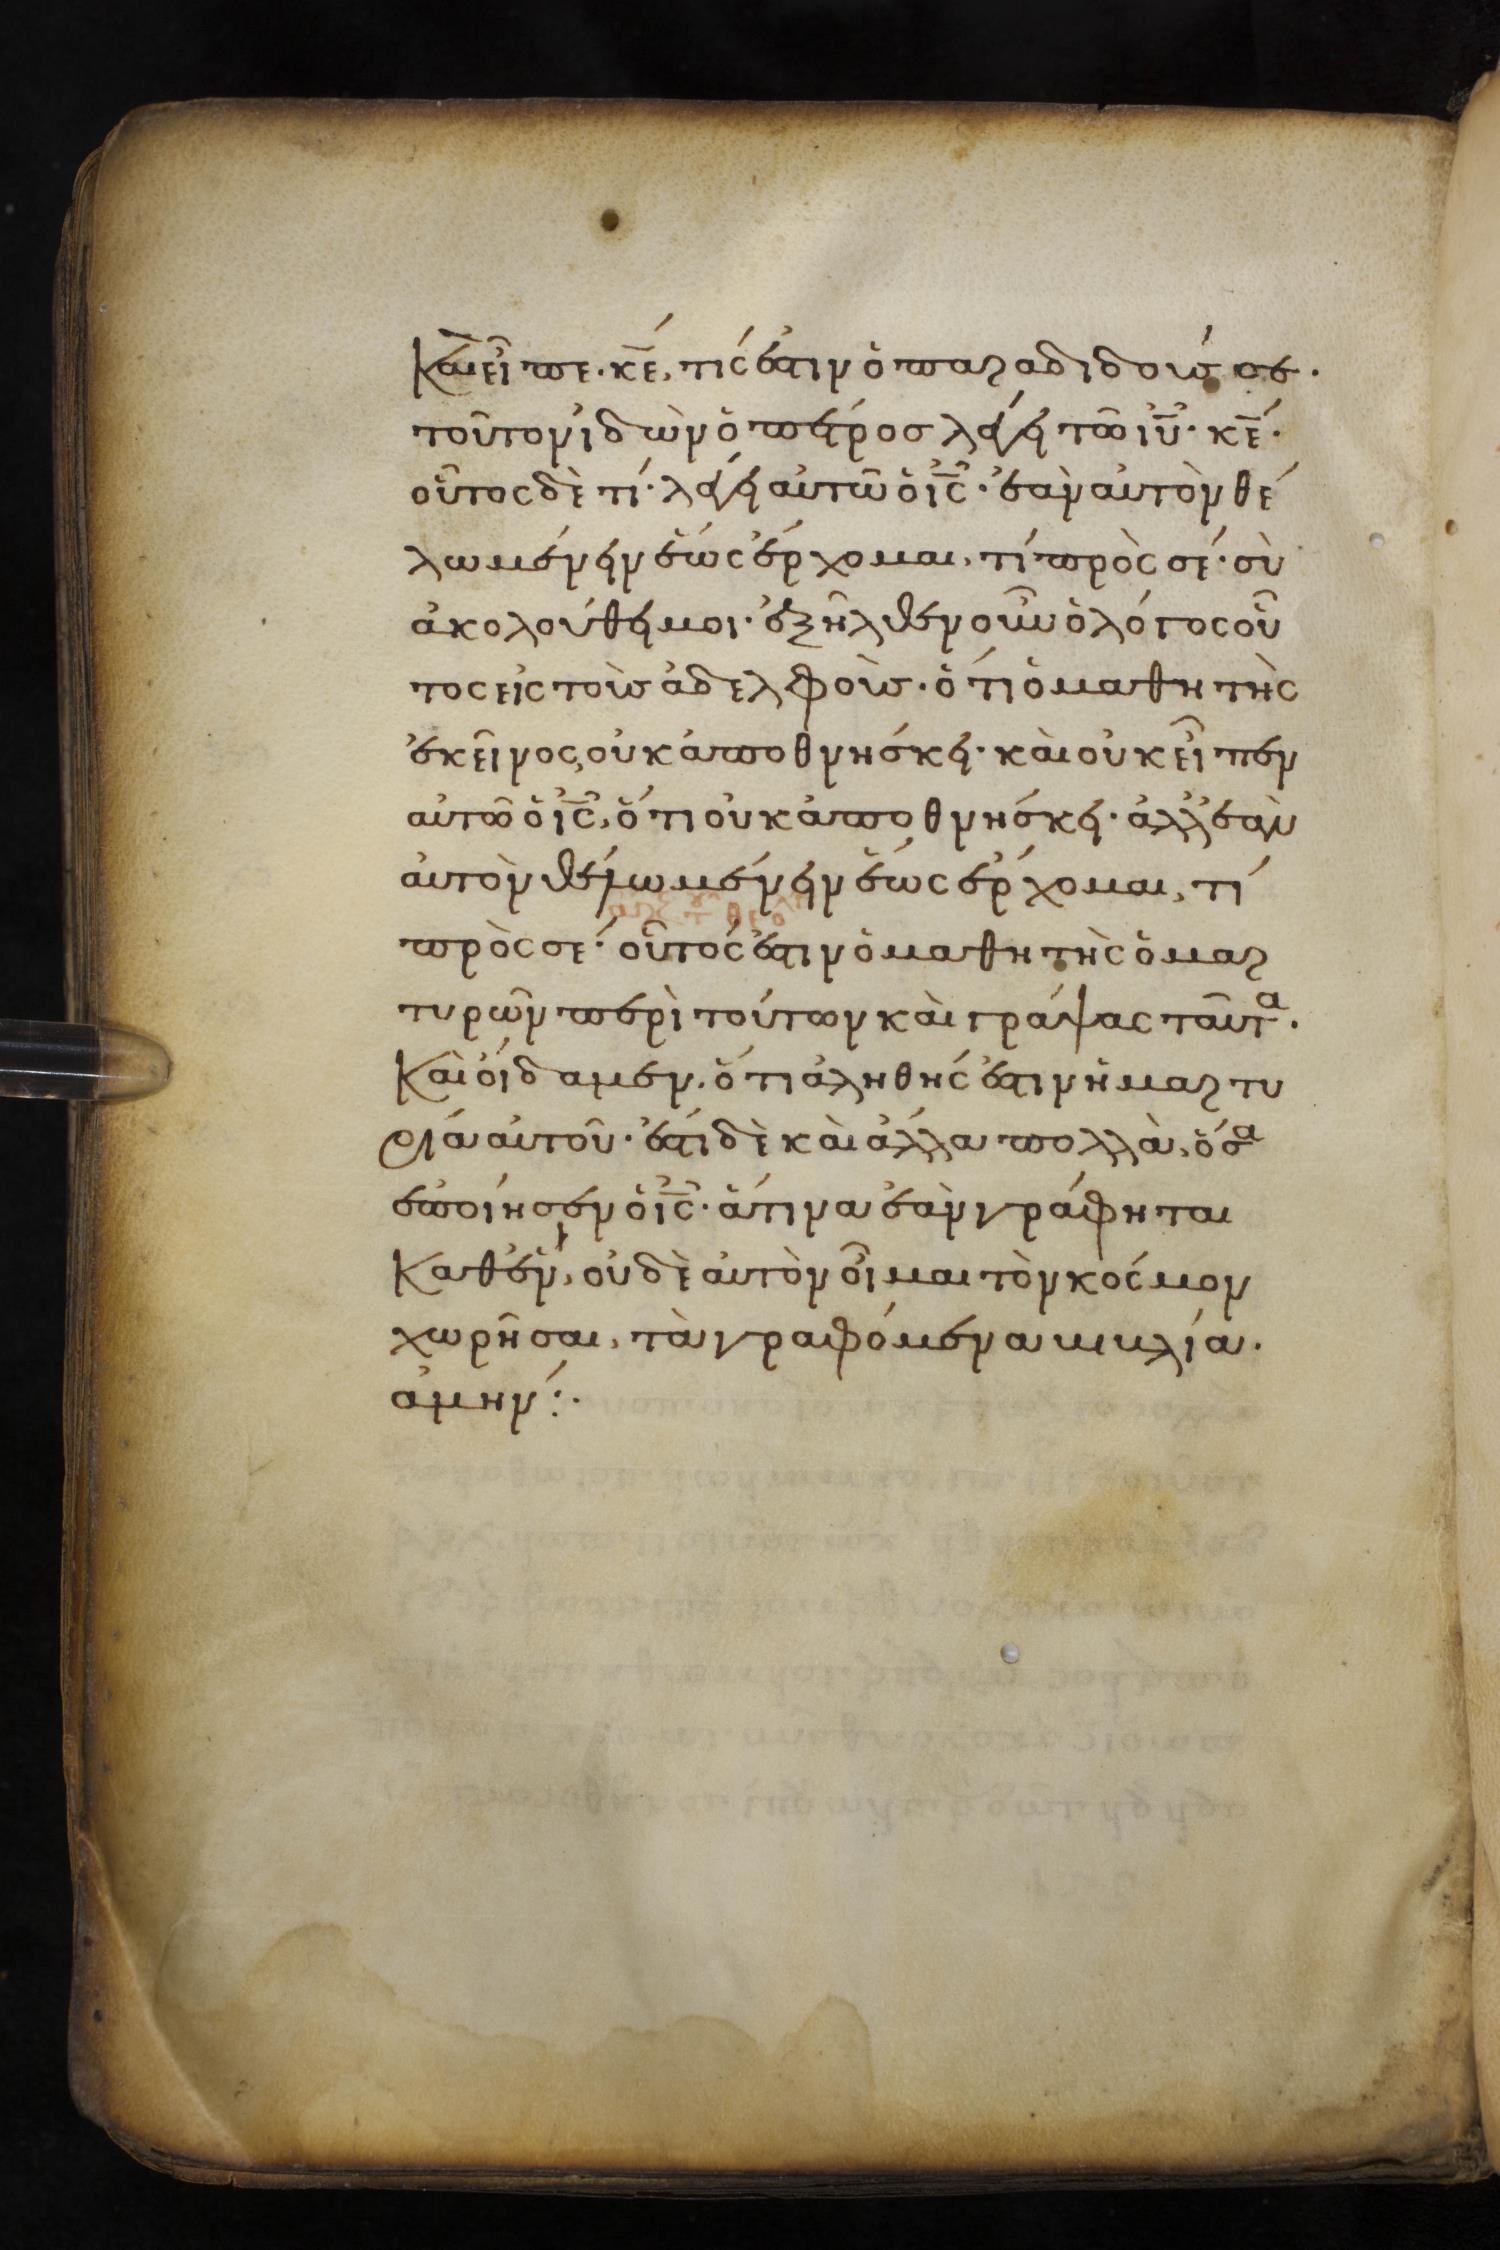 Καὶ εἶπε. κ̅ε̅, τίς ἐστιν ὁ παραδιδούς σε.
τοῦτον ἰδὼν ὁ πέτρος λέγει τῶ ἰ̅υ̅. κ̅ε̅.
οὗτος δὲ τί. λέγει αὐτῶ ὁ ἰ̅ς̅. ἐὰν αὐτὸν θέ
λω μένειν ἕως ἔρχομαι, τί πρὸς σέ. σὺ
ἀκολούθει μοι. ἐξῆλθεν οὖν ὁ λόγος οὗ
τος εἰς τοὺς ἀδελφούς. ὅτι ὁ μαθητὴς
ἐκεῖνος, οὐκ ἀποθνήσκει. καὶ οὐκ εἶπεν
αὐτῶ ὁ ἰ̅ς̅, ὅτι οὐκ ἀποθνήσκει. ἀλλ' ἐὰν
αὐτὸν θέλω μένειν ἕως ἔρχομαι, τί
πρὸς σέ. οὗτός ἐστιν ὁ μαθητὴς ὁ μαρ
τυρῶν περὶ τούτων καὶ γράψας ταῦτα.
Καὶ οἴδαμεν. ὅτι ἀληθής ἐστιν ἡ μαρτυ
ρία αὐτοῦ. ἔστι δὲ καὶ ἄλλα πολλὰ, ὅσα
ἐποίησεν ὁ ἰ̅ς̅. ἅτινα ἐὰν γράφηται
Καθ' ἕν, οὐδὲ αὐτὸν οἶμαι τὸν κόσμον
χωρῆσαι, τὰ γραφόμενα βιβλία.
ἀμήν:.